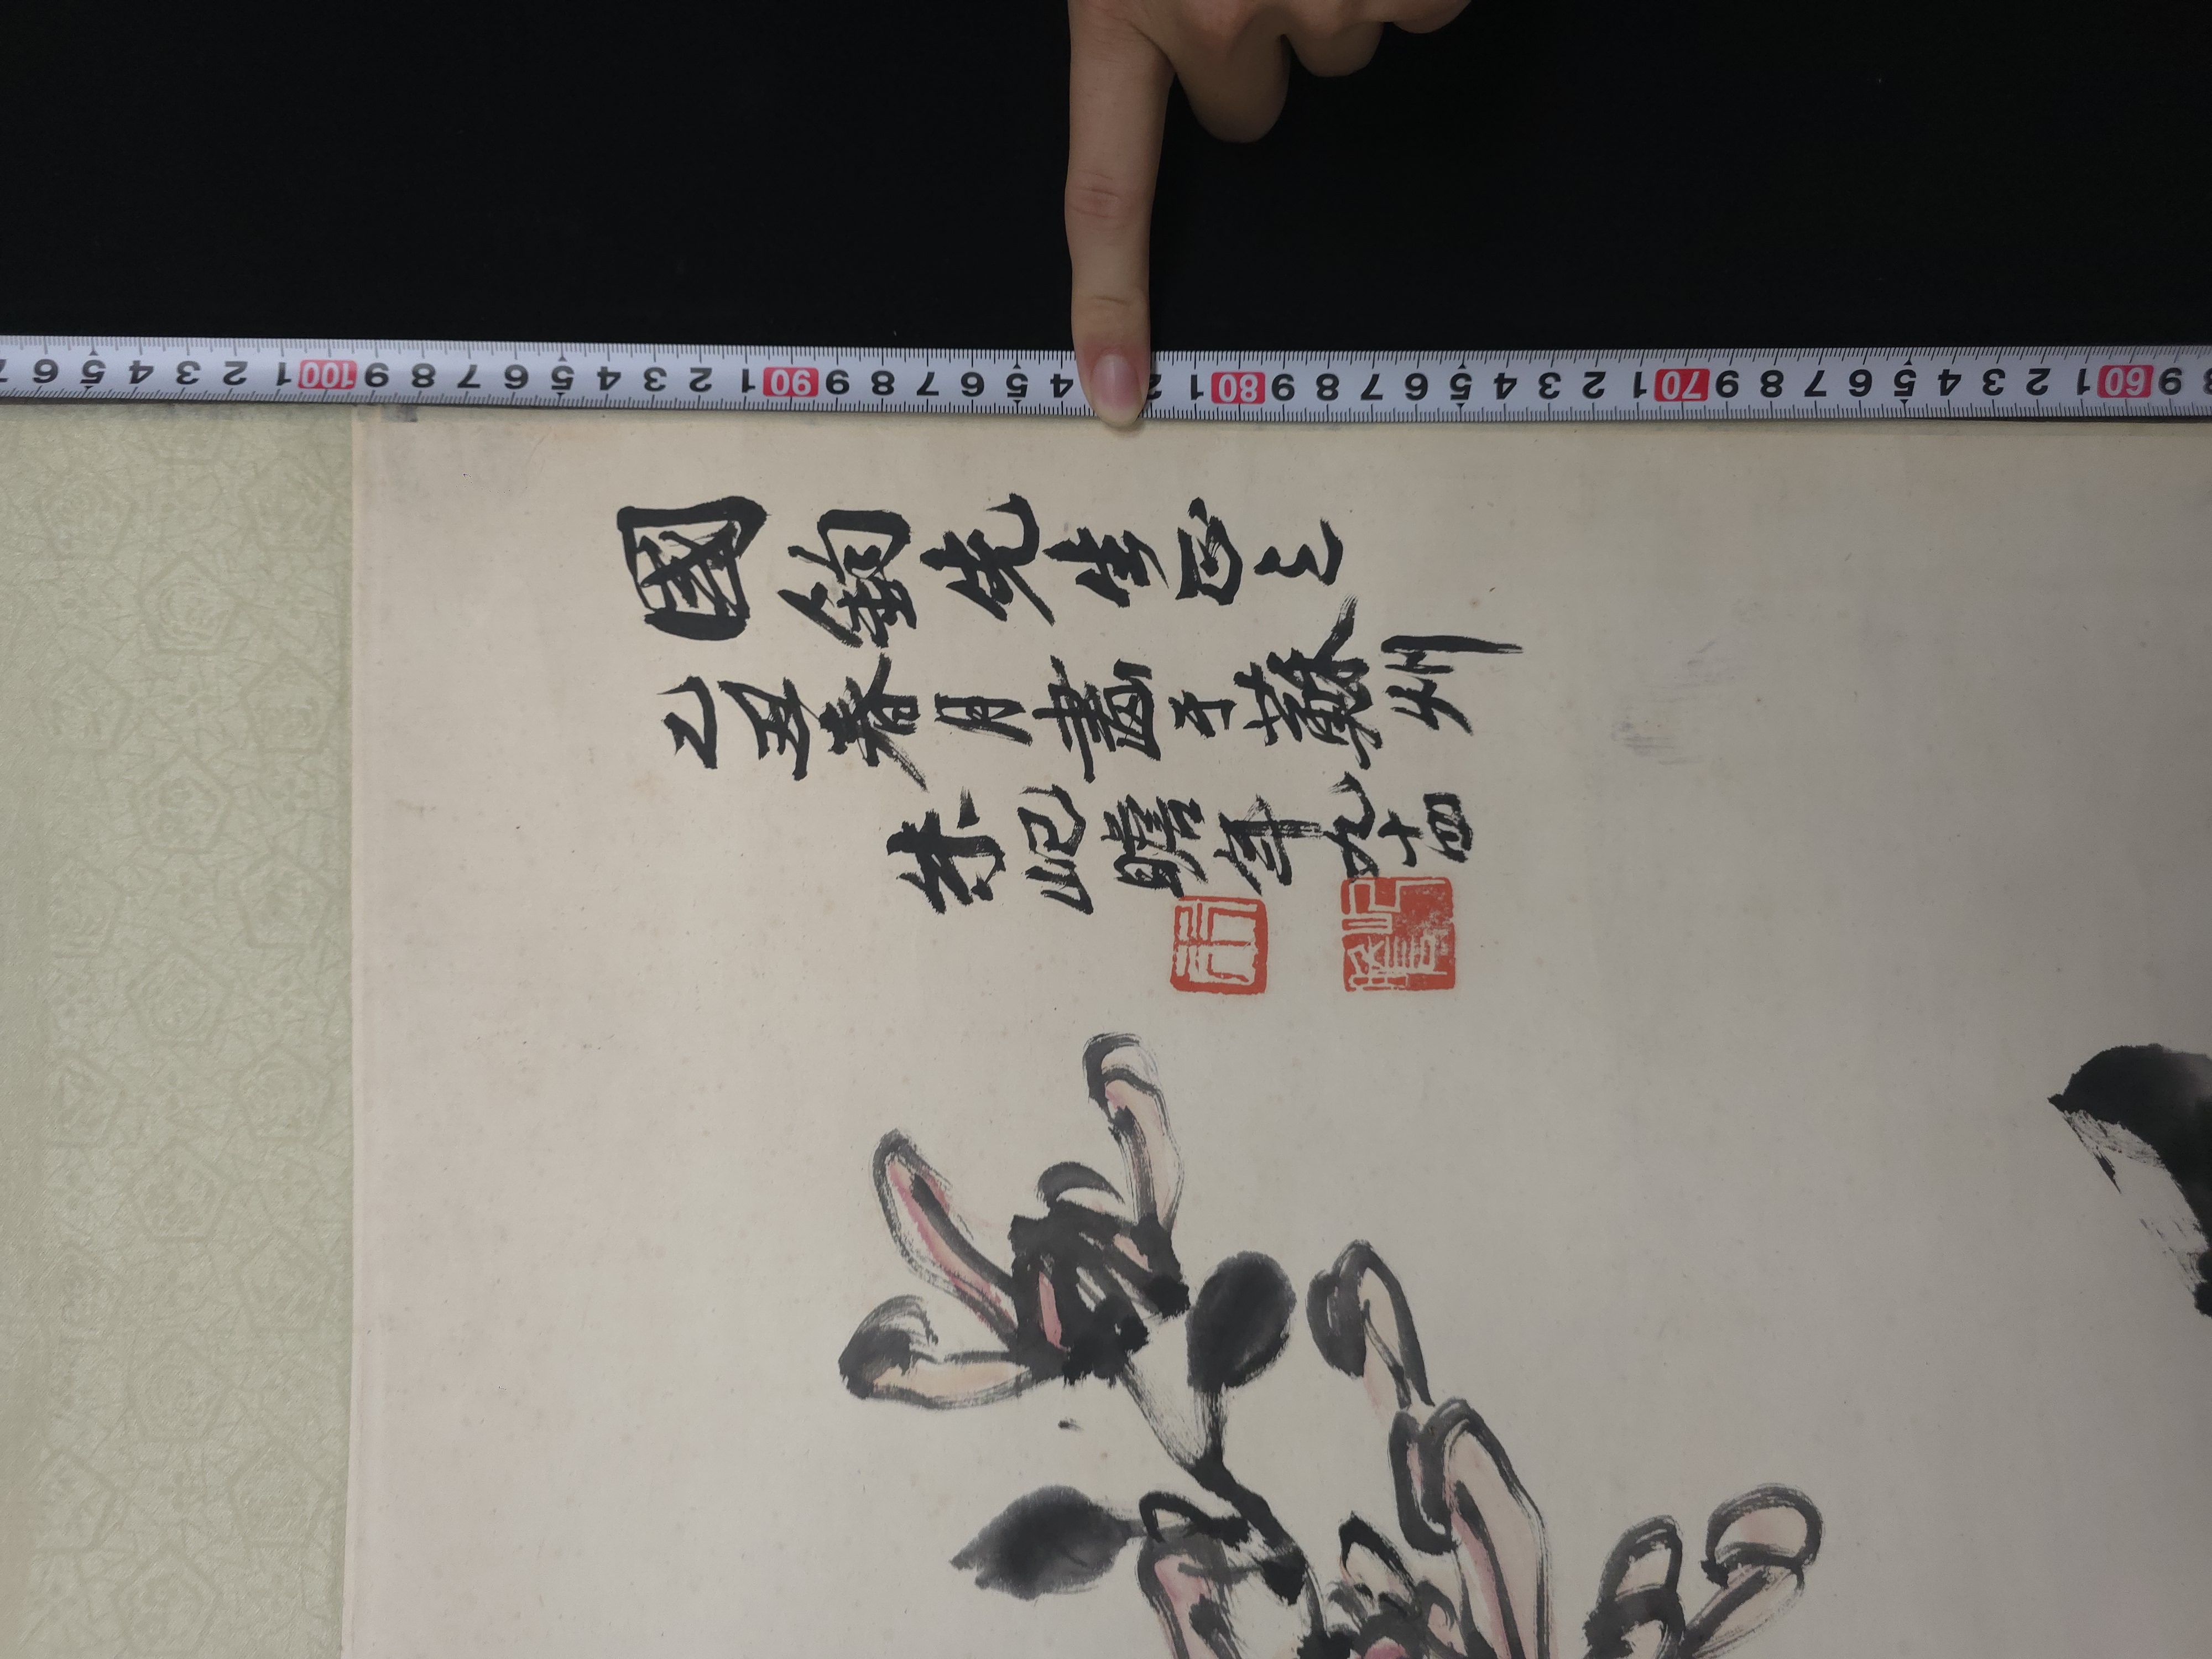 8 9 60 1 2 3 4 5 6 7 8 9 70 1 2 3 4 5 6 7 8 9 80 1 2 4 5 6 7 8 9 90 1 2 3 4 5 6 7 8 9 100 1 2 3 4 5 6 7
國鈞先生正之
乙丑春月畫于蘇州
朱屺瞻年九十四
屺瞻